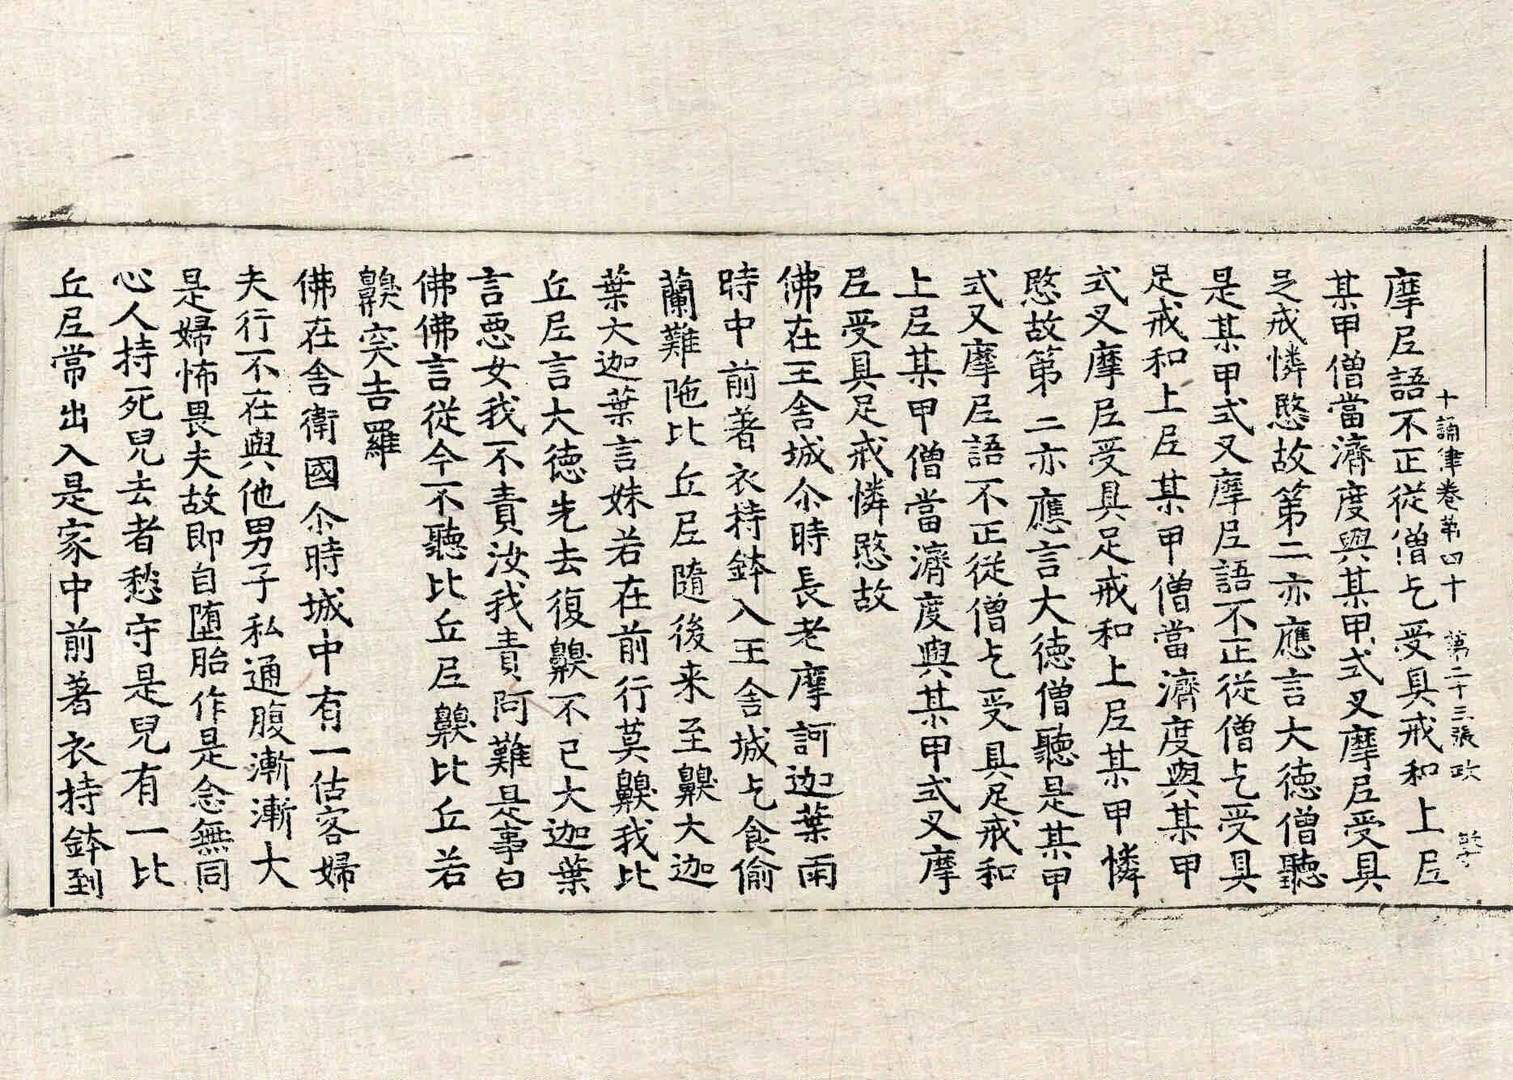 十誦律卷第四十 第二十三張 政
摩尼語不正從僧乞受具戒和上尼
某甲僧當濟度與某甲式叉摩尼受具
足戒憐愍故第二亦應言大德僧聽
是某甲式叉摩尼語不正從僧乞受具
足戒和上尼某甲僧當濟度與某甲
式叉摩尼受具足戒和上尼某甲憐
愍故第二亦應言大德僧聽是某甲
式叉摩尼語不正從僧乞受具足戒和
上尼某甲僧當濟度與某甲式叉摩
尼受具足戒憐愍故
佛在王舍城尒時長老摩訶迦葉雨
時中前著衣持鉢入王舍城乞食偷
蘭難陁比丘尼隨後来至齅大迦
葉大迦葉言妹若在前行莫齅我比
丘尼言大德先去復齅不已大迦葉
言惡女我不責汝我責阿難是事白
佛佛言從今不聽比丘尼齅比丘若
齅突吉羅
佛在舍衛國尒時城中有一估客婦
夫行不在與他男子私通腹漸漸大
是婦怖畏夫故即自墮胎作是念無同
心人持死兒去者愁守是兒有一比
丘尼常出入是家中前著衣持鉢到